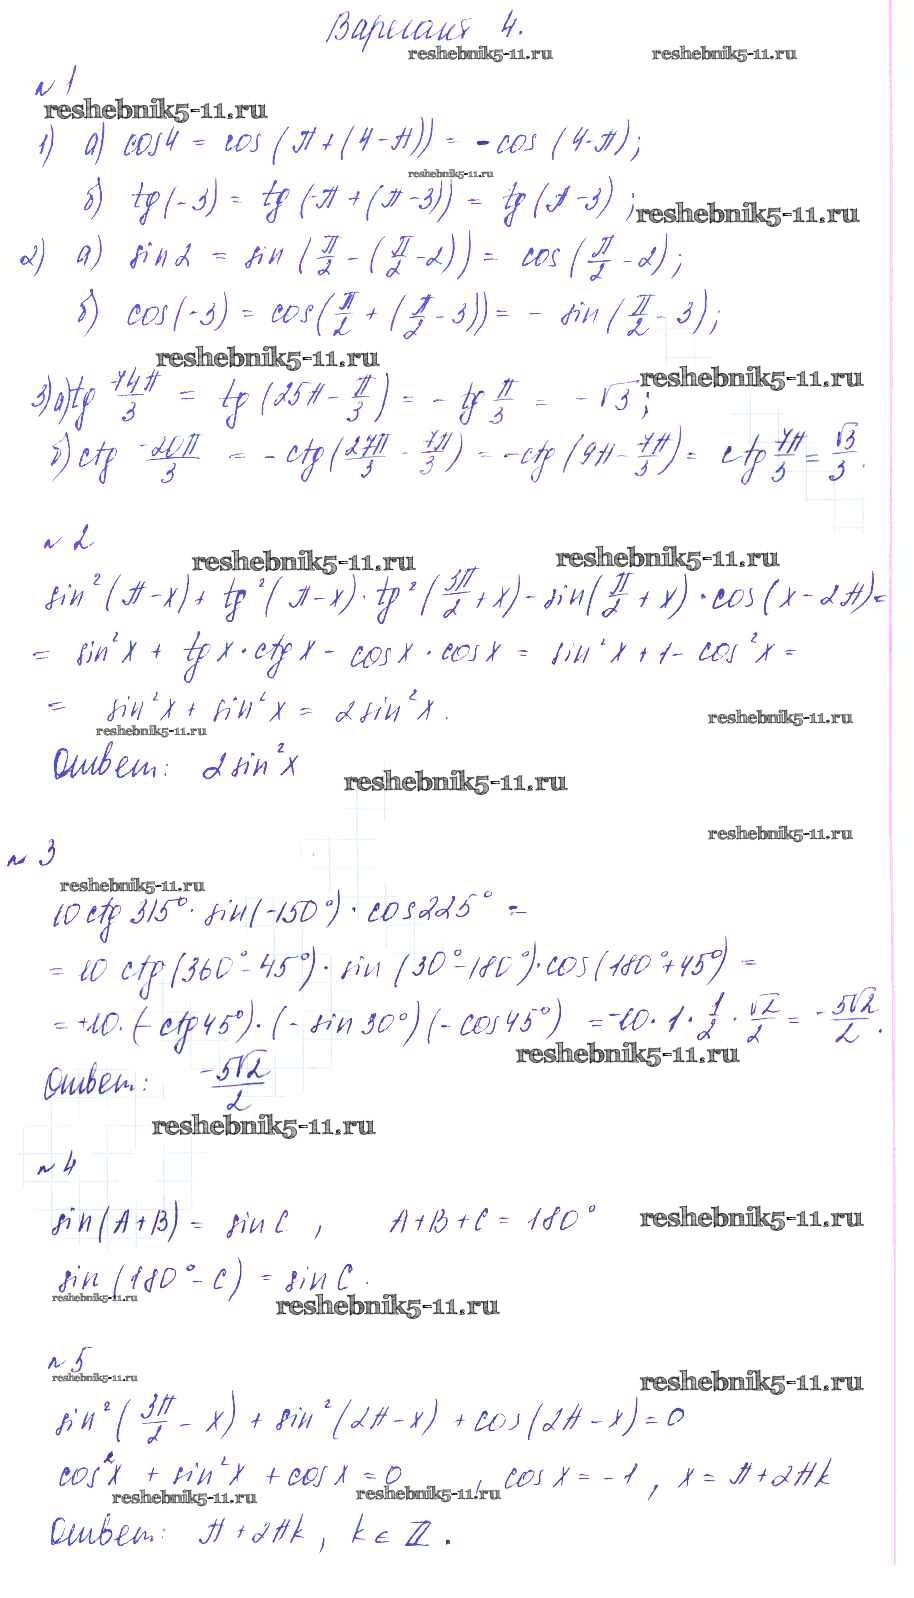 Вариант 4.
reshebnik5-11.ru reshebnik5-11.ru
№1
reshebnik5-11.ru
1) а) cos4 = cos(π+(4-π)) = -cos(4-π);
reshebnik5-11.ru
б) tg(-3) = tg(-π+(π-3)) = tg(π-3);
reshebnik5-11.ru
2) а) sin2 = sin(π/2 - (π/2 - 2)) = cos(π/2 - 2);
б) cos(-3) = cos(π/2 + (π/2 - 3)) = - sin(π/2 - 3);
reshebnik5-11.ru
reshebnik5-11.ru
3) а) tg 74π/3 = tg(25π - π/3) = - tg π/3 = -√3;
б) ctg -20π/3 = -ctg(27π/3 - 7π/3) = -ctg(9π - 7π/3) = ctg 7π/3 = √3/3.
№2
reshebnik5-11.ru reshebnik5-11.ru
sin²(π-x) + tg²(π-x)·tg²(3π/2 + x) - sin(π/2 + x)·cos(x-2π) =
= sin²x + tgx·ctgx - cosx·cosx = sin²x + 1 - cos²x =
= sin²x + sin²x = 2sin²x.
reshebnik5-11.ru
reshebnik5-11.ru
Ответ: 2sin²x
reshebnik5-11.ru
reshebnik5-11.ru
№3
reshebnik5-11.ru
10ctg315°·sin(-150°)·cos225° =
= 10 ctg(360°-45°)·sin(30°-180°)·cos(180°+45°) =
= +10·(-ctg45°)·(-sin30°)(-cos45°) = -10·1·1/2·√2/2 = -5√2/2.
reshebnik5-11.ru
Ответ: -5√2/2
reshebnik5-11.ru
№4
sin(A+B) = sinC, A+B+C = 180°
reshebnik5-11.ru
sin(180°-C) = sinC.
reshebnik5-11.ru
reshebnik5-11.ru
№5
reshebnik5-11.ru
reshebnik5-11.ru
sin²(3π/2 - x) + sin²(2π-x) + cos(2π-x) = 0
cos²x + sin²x + cosx = 0, cosx = -1, x = π+2πk
reshebnik5-11.ru reshebnik5-11.ru
Ответ: π+2πk, k∈Z.